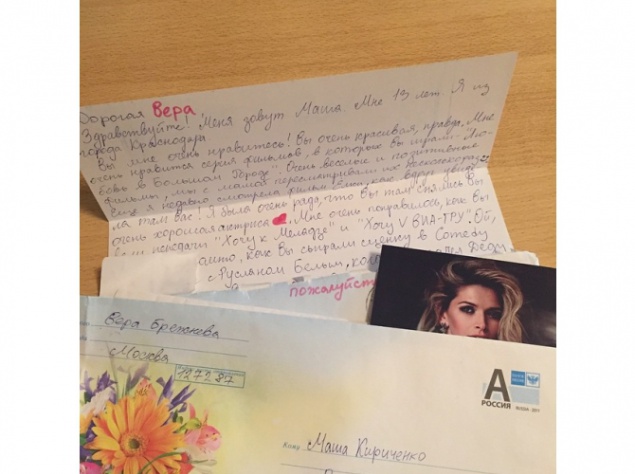 Дорогая Вера!
Здравствуйте! Меня зовут Маша. Мне 13 лет. Я из
города Краснодара
Вы мне очень нравитесь! Вы очень красивая, правда. Мне
очень нравится серия фильмов, в которые вы играли "Лю-
бовь в Большом Городе". Очень веселые и позитивные
фильмы, мы с мамой пересматривали их
Ещё я недавно смотрела фильм
ла там вас! Я была очень рада, что вы там снялись Вы
очень хорошая актриса Мне очень понравилось, как вы
вели передачи "Хочу к Меладзе" и "Хочу V ВИА-ГРУ". Ой,
как вы сыграли сценку в Comedy
с Русланом Белым,
пожалуйст
Вера Брежнева
Москва
127287
А
РОССИЯ
Кому Маша Кириченко